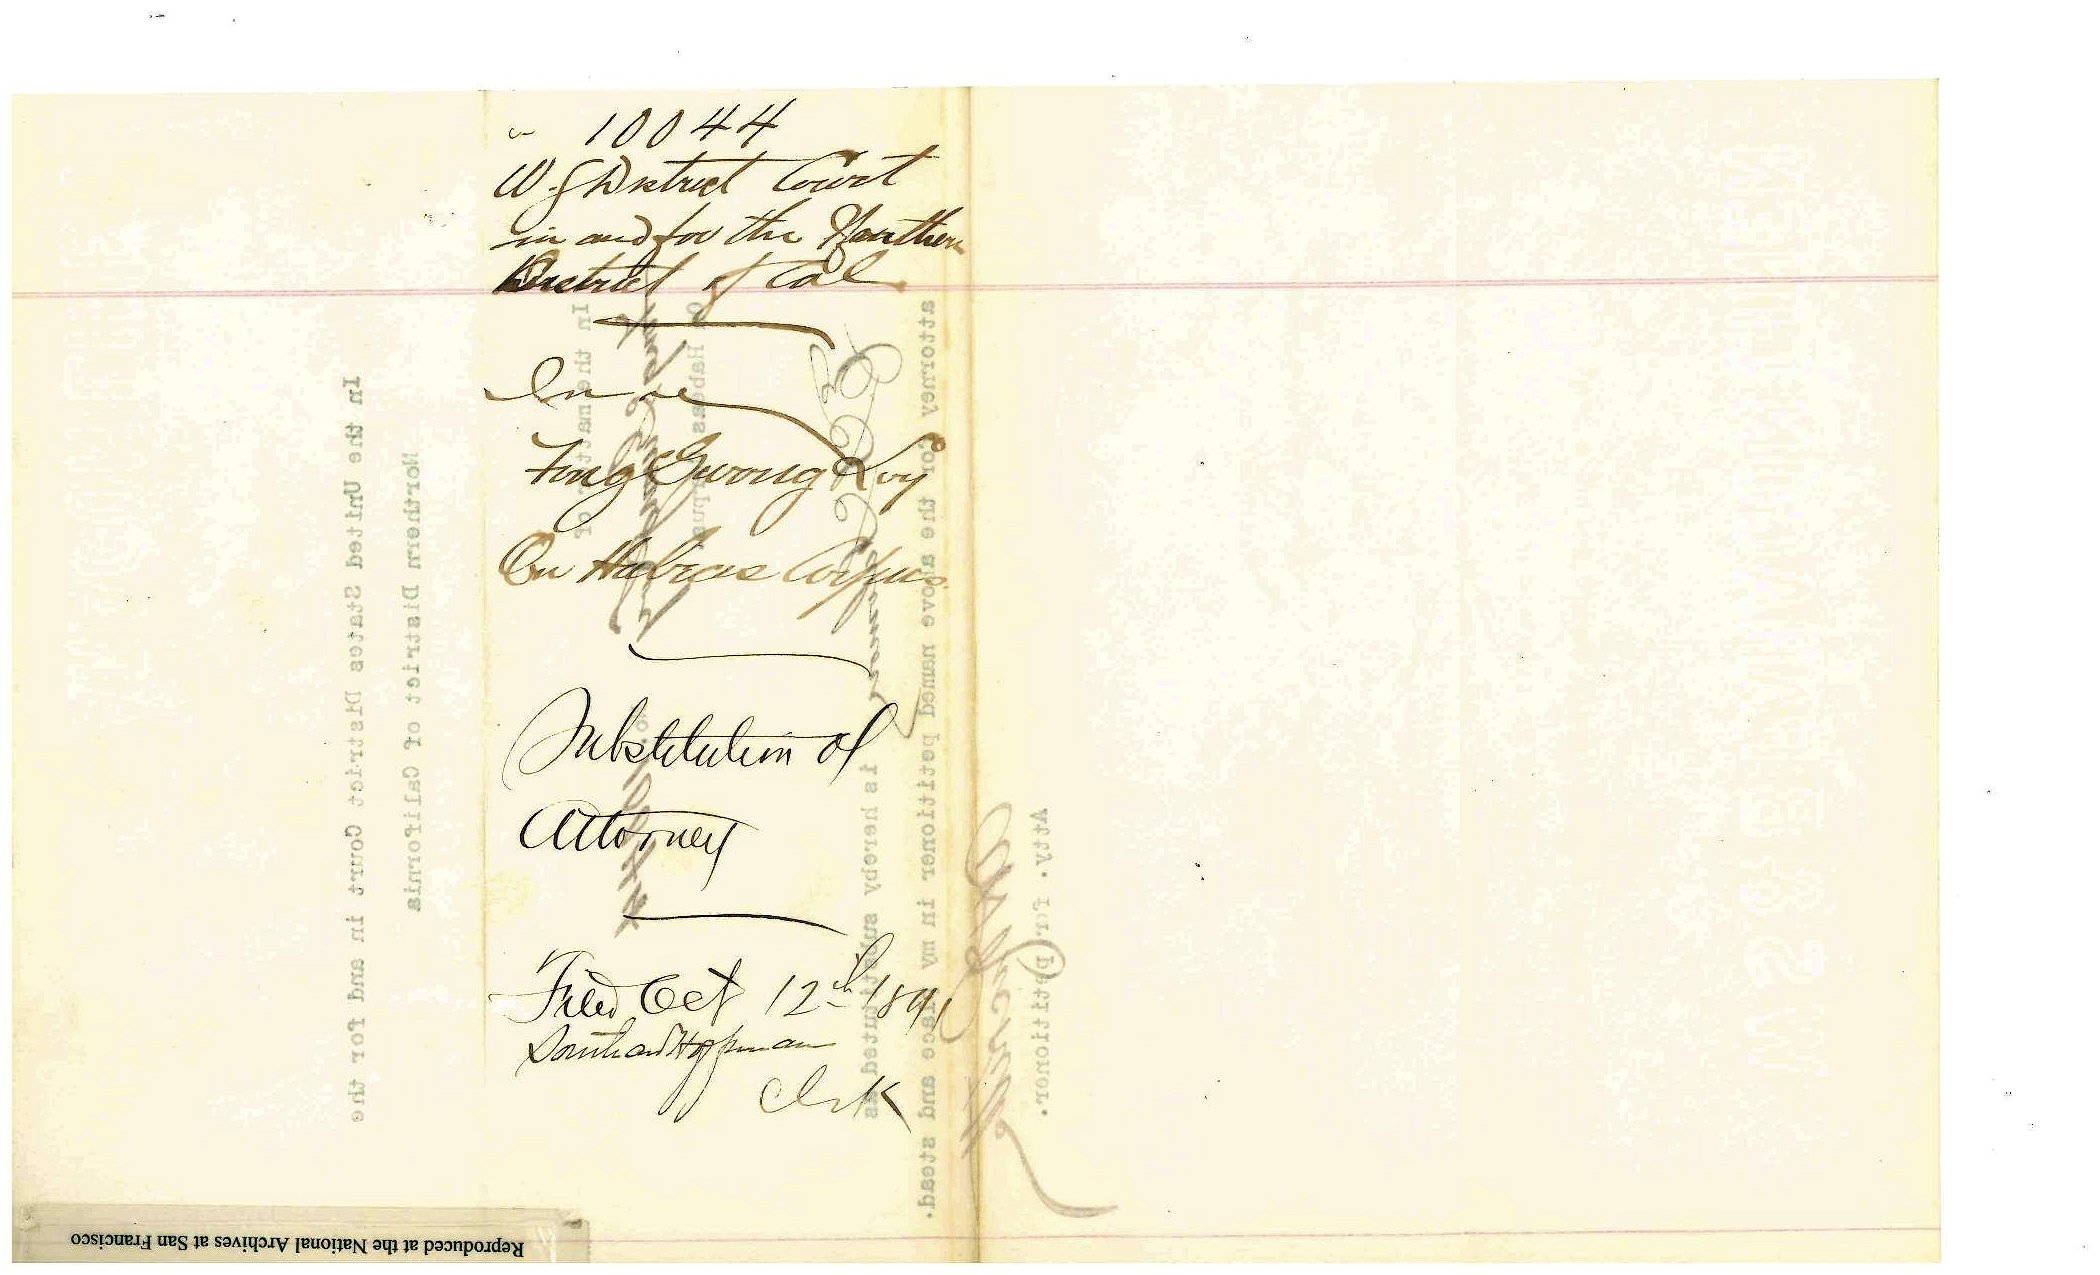 10044
U.S District Court
in and for the Northern
District of Cal
In re
Fong Gwong Loy
On Habeas Corpus
Substitution of
Attorney
Filed Oct 12th 1891
Southard Hoffman
Clerk
In the United States District Court in and for the
Northern District of California
In the matter of
On Habeas Corpus
No. 10044
is hereby substituted as
attorney for the above named petitioner in my place and stead.
Atty. for petitioner.
Reproduced at the National Archives at San Francisco